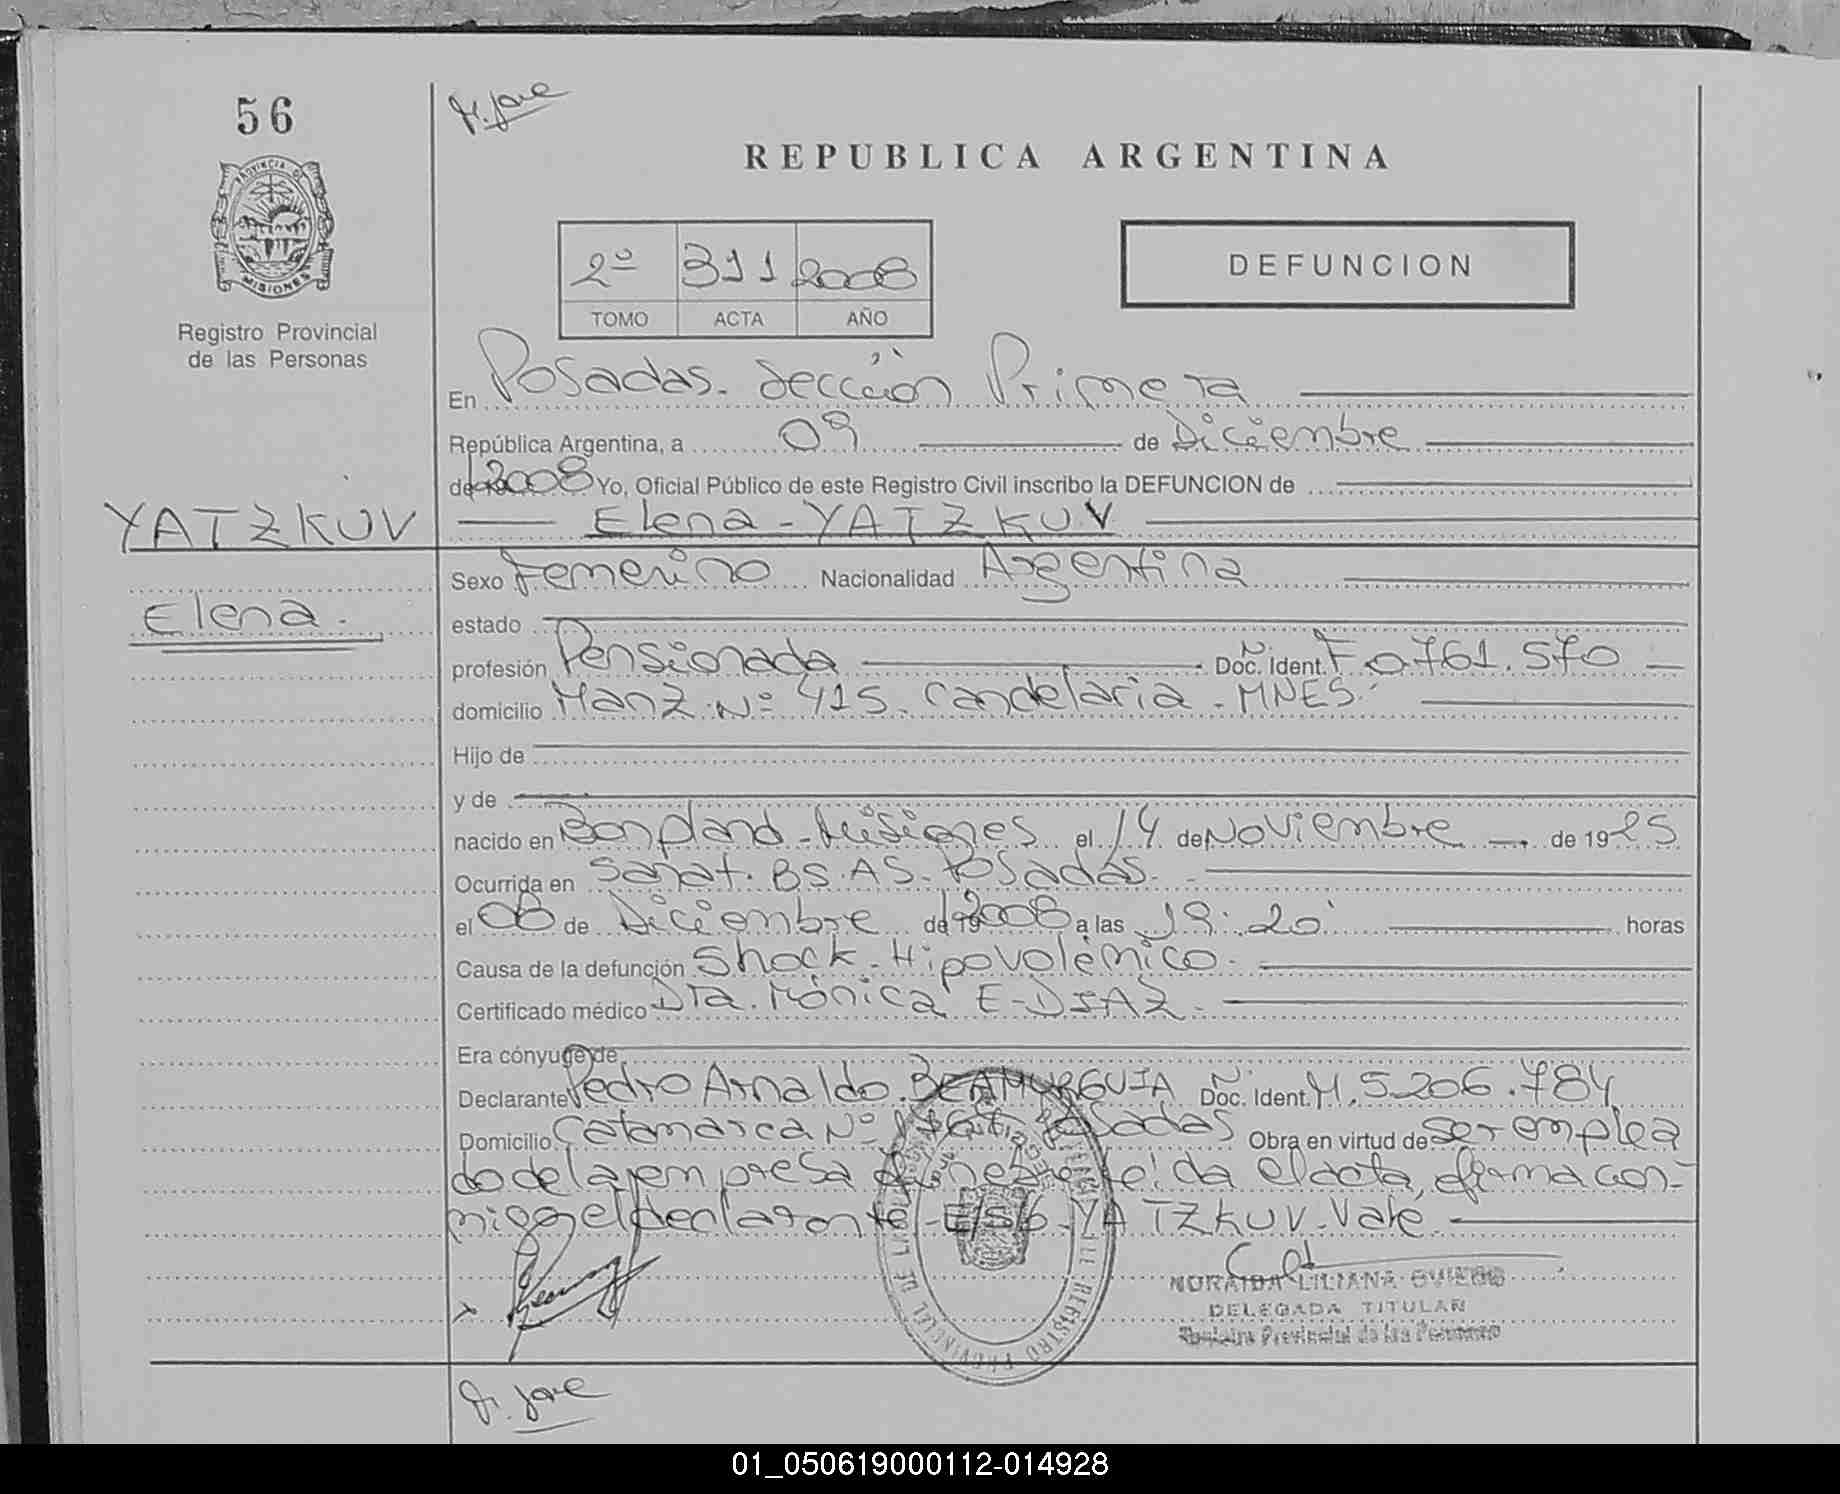 56
PROVINCIA DE
MISIONES
Registro Provincial
de las Personas
REPUBLICA ARGENTINA
2º 311 2008
TOMO ACTA AÑO
DEFUNCION
En Posadas. Sección Primera
República Argentina, a 09 de Diciembre
de 2008 Yo, Oficial Público de este Registro Civil inscribo la DEFUNCION de
YATZKUV
Elena - YATZKUV
Elena.
Sexo Femenino Nacionalidad Argentina
estado
profesión Pensionada Doc. Ident. F 0.761.570
domicilio Manz. Nº 415. Candelaria - MNES.
Hijo de
y de
nacido en Bonpland - Misiones el 14 de Noviembre de 1925
Ocurrida en Sanat. BS.AS. Posadas.
el 08 de Diciembre de 19 2008 a las 19:20 horas
Causa de la defunción Shock - Hipovolémico.
Certificado médico Dra. Mónica E. DIAZ.
Era cónyuge de
Declarante Pedro Arnaldo. BEAMURGUIA Doc. Ident. M. 5.206.784
Domicilio Catamarca Nº Posadas Obra en virtud de ser emplea
do de la empresa leida el acta, firma con-
migo el declarante - E/s/b - YATZKUV. Vale.
NORAIDA LILIANA OVIEDO
DELEGADA TITULAR
Registro Provincial de las Personas
01_050619000112-014928